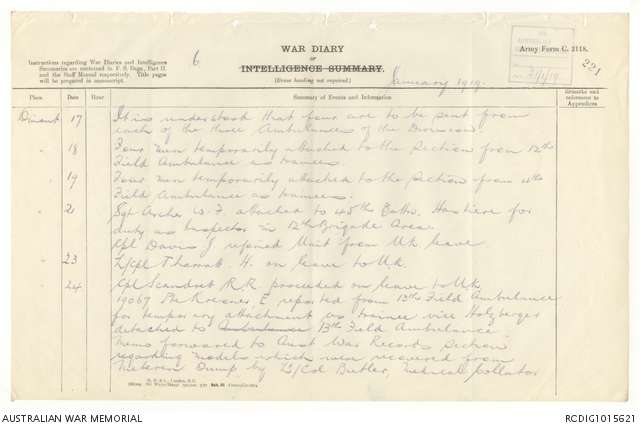 6
WAR DIARY
or
INTELLIGENCE SUMMARY.
(Erase heading not required.)
Instructions regarding War Diaries and Intelligence
Summaries are contained in F. S. Regs., Part II.
and the Staff Manual respectively. Title pages
will be prepared in manuscript.
Army Form C. 2118.
221
January 1919.
Place Date Hour Summary of Events and Information Remarks and references to Appendices
Dinant 17 It is understood that four are to be sent from
each of the three Ambulances of the Division.
" 18 Four men temporarily attached to the Section from 12th
Field Ambulance as trainees.
" 19 Four men temporarily attached to the Section from 4th
Field Ambulance as trainees.
" 2 Sgt Archer W. F. attached to 45th Battn. Hastiere for
duty as Inspector in 12th Brigade Area.
Cpl Davis J rejoined Unit from UK leave
" 23 L/Cpl H. on leave to U.K.
" 24 Cpl R.R. proceeded on leave to U.K.
19067 Pte E. reported from 13th Field Ambulance
for temporary attachment as trainee vice Holzberger
detached to Ambulance 13th Field Ambulance
Memo forwarded to Aust War Records Section
regarding models which were recovered from
Meteren Dump by Lt/Col Butler, Medical Collator
AUSTRALIAN WAR MEMORIAL
RCDIG1015621